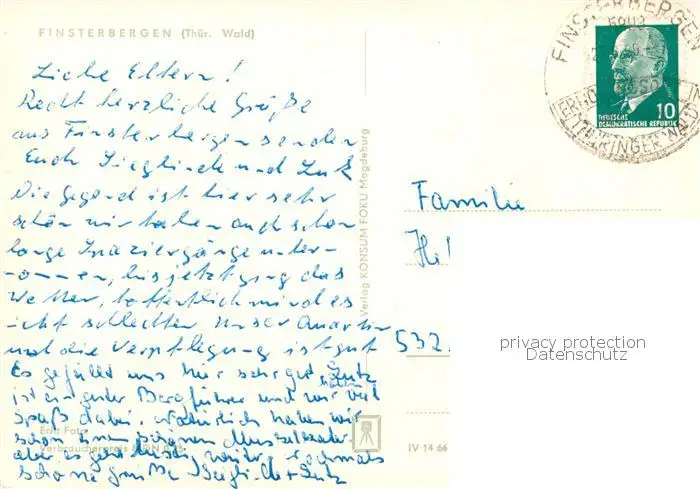 FINSTERBERGEN (Thür. Wald)
Liebe Eltern!
Recht herzliche Grüße
aus Finsterbergen senden
Euch Sieglinde und Lutz
Die Gegend ist hier sehr
schön wir haben auch schon
lange Spaziergänge unter-
nommen, bis jetzt ging das
Wetter, hoffentlich wird es
nicht schlechter. Unser Quartier
und die Verpflegung ist gut
Es gefällt uns hier sehr gut Lutz
ist ein guter Bergführer und wir hatten viel
Spaß dabei. Natürlich haben wir
schon einen schönen Muskelkater
aber es geht weiter. Nochmals
schöne Grüße Sieglinde + Lutz
Echt Foto
Verbraucherpreis MDN
Verlag KONSUM FOKU Magdeburg
IV 14 66
FINSTERBERGEN
THÜRINGER WALD
10
DEUTSCHE
DEMOKRATISCHE REPUBLIK
Familie
532
privacy protection
Datenschutz